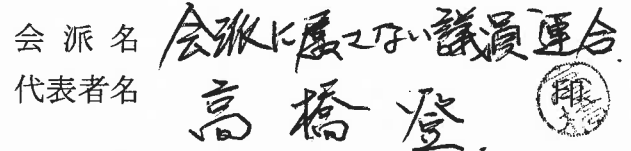 会派名 会派に属さない議員連合.
代表者名 高橋 登.